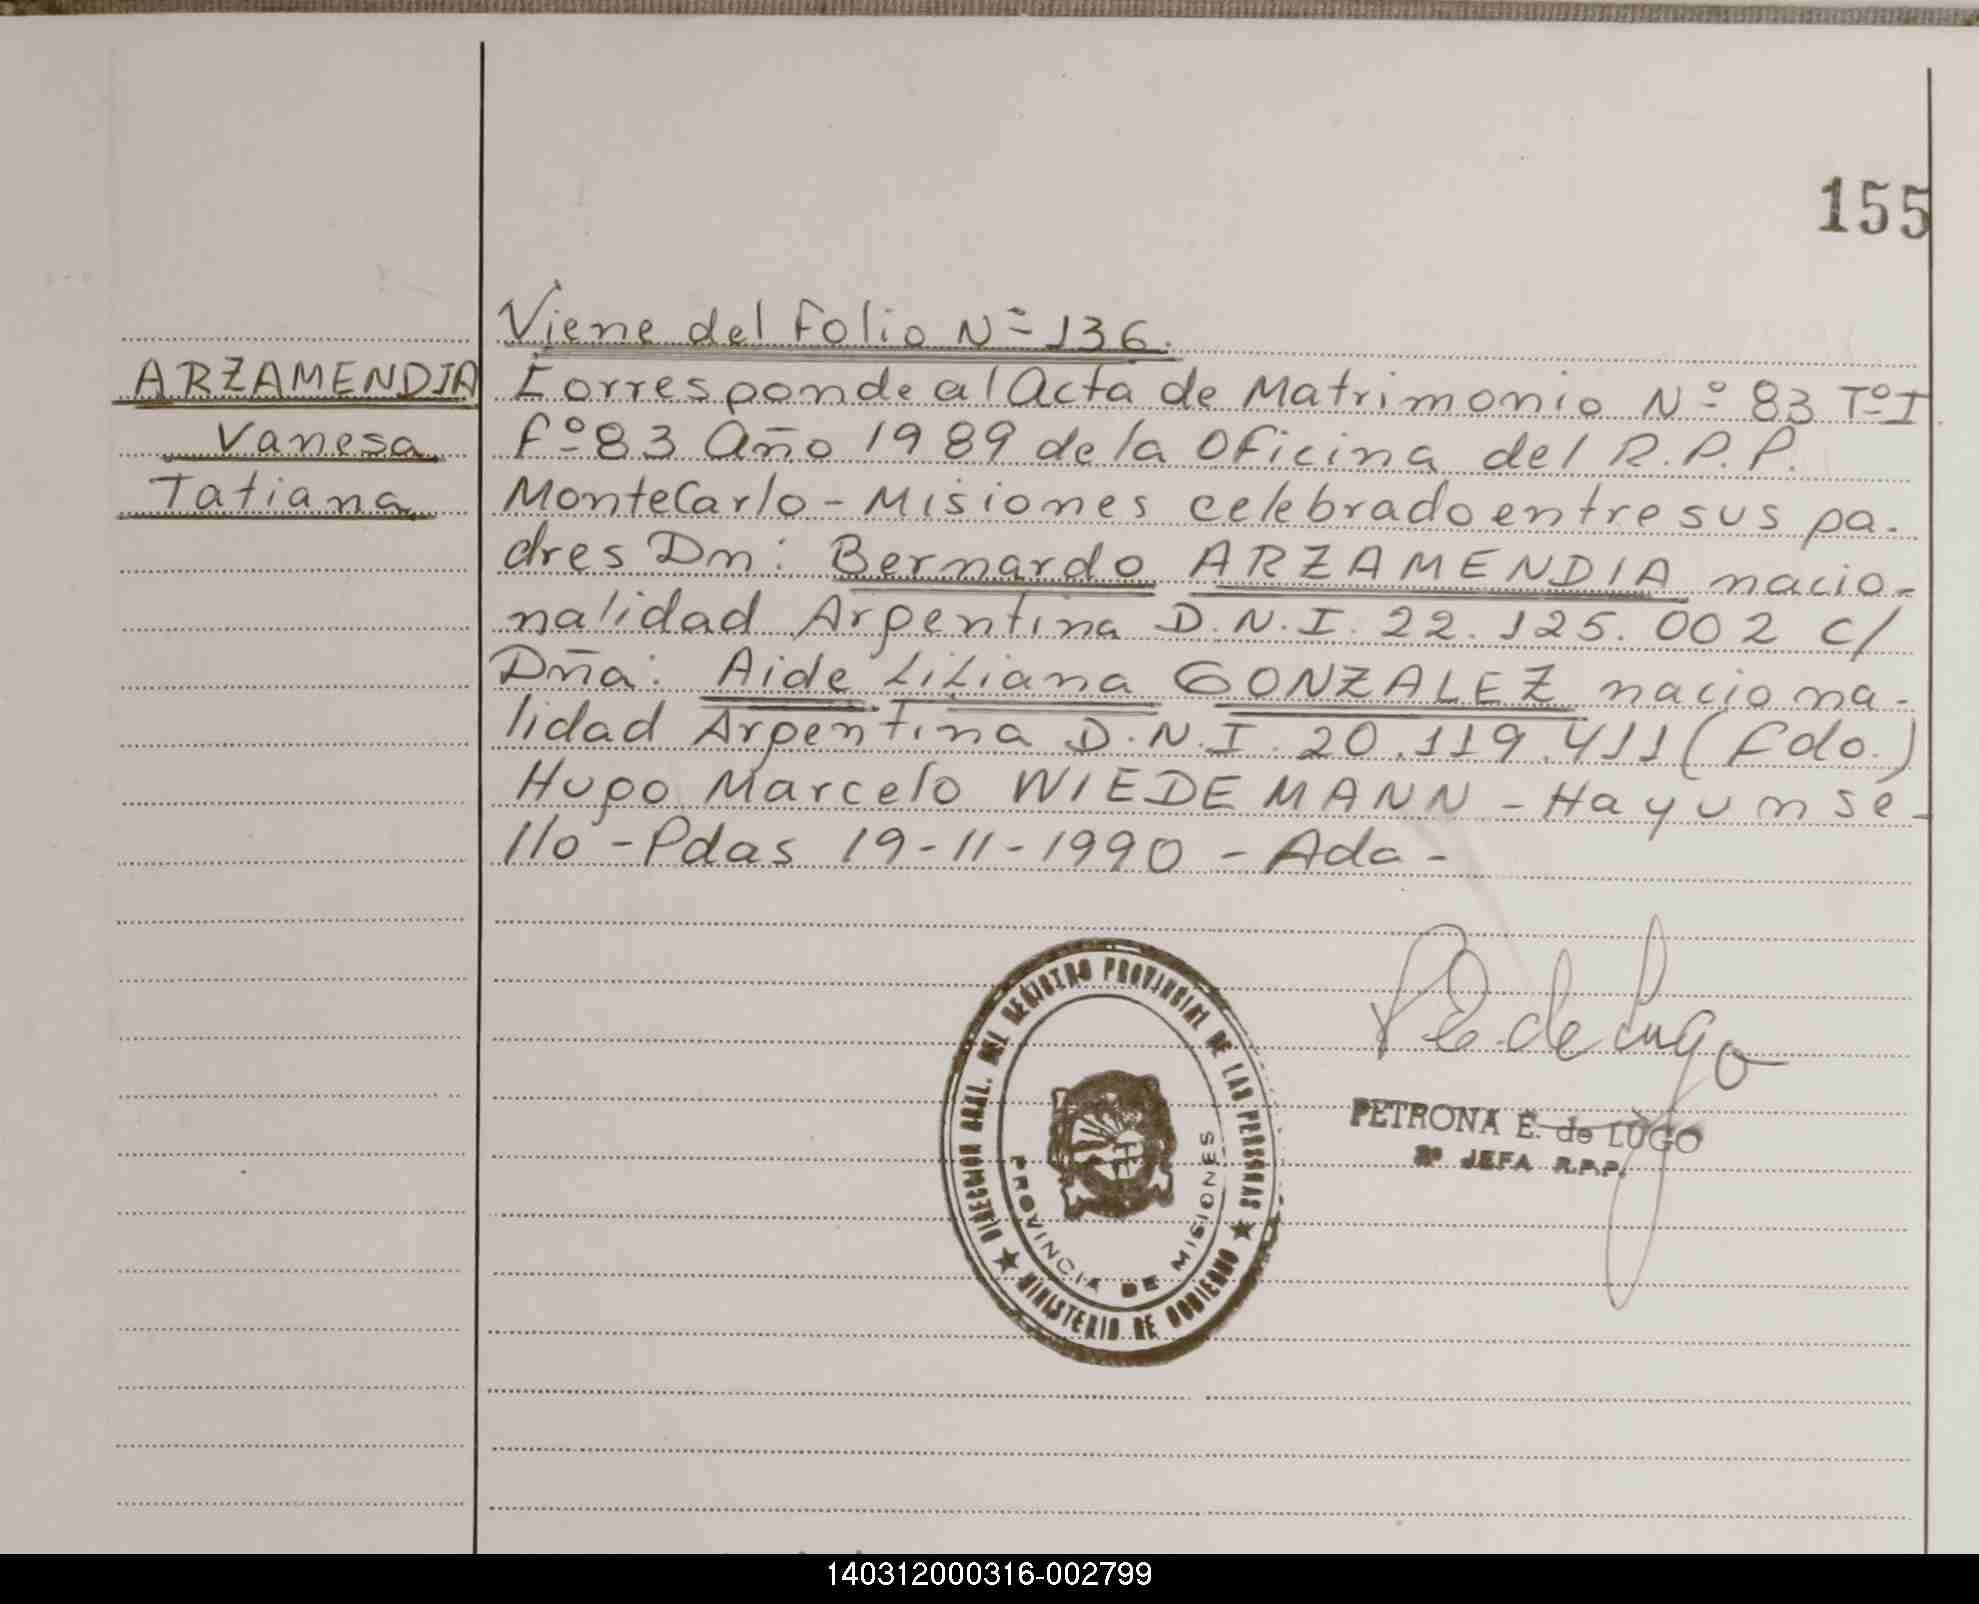 155
Viene del Folio Nº 136.
ARZAMENDIA
Vanesa
Tatiana
Corresponde al Acta de Matrimonio Nº 83 Tº I
Fº 83 Año 1989 de la Oficina del R.P.P.
MonteCarlo - Misiones celebrado entre sus pa-
dres Dn: Bernardo ARZAMENDIA nacio-
nalidad Argentina D.N.I. 22.125.002 c/
Dña: Aide Liliana GONZALEZ naciona-
lidad Argentina D.N.I. 20.119.411 (Fdo.)
Hugo Marcelo WIEDEMANN - Hay un se-
llo - Pdas 19-11-1990 - Ada -
DIRECCION GRAL. DEL REGISTRO PROVINCIAL DE LAS PERSONAS
MINISTERIO DE GOBIERNO
PROVINCIA DE MISIONES
PE de Lugo
PETRONA E. de LUGO
2º JEFA R.P.P.
140312000316-002799